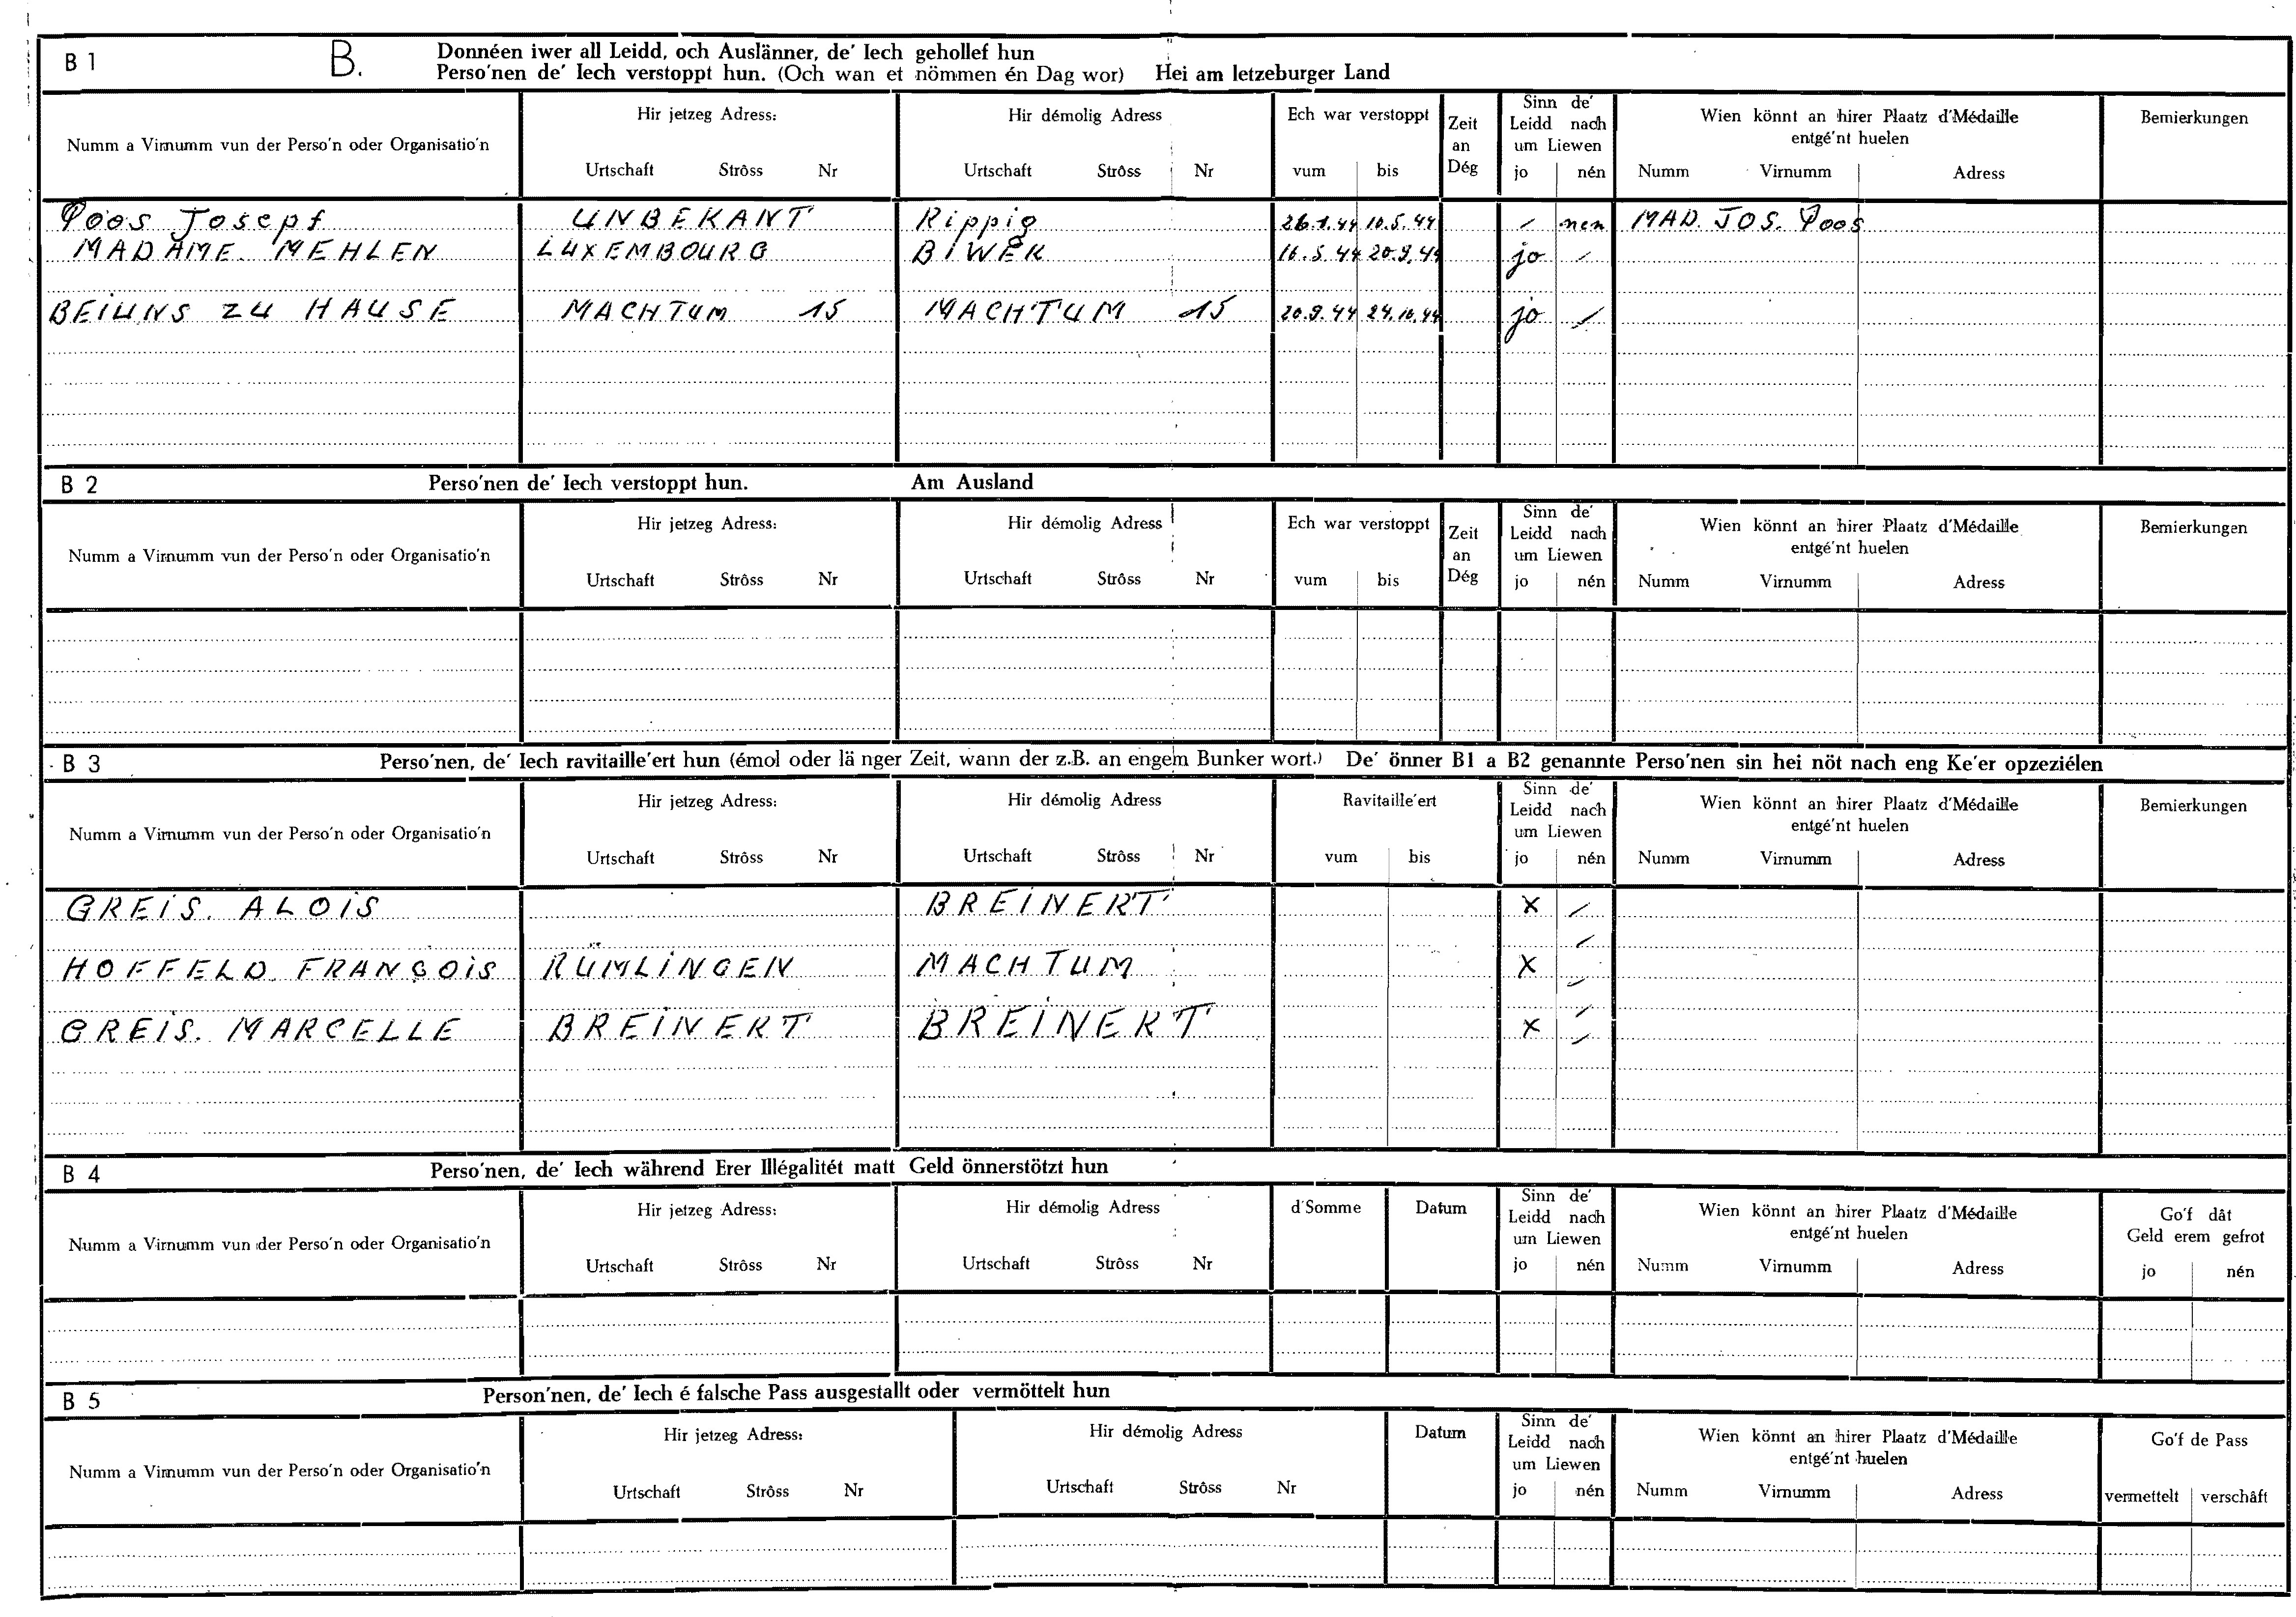 B 1 B. Donnéen iwer all Leidd, och Auslänner, de' Iech gehollef hun
Perso'nen de' Iech verstoppt hun. (Och wan et nömmen én Dag wor) Hei am letzeburger Land
Numm a Virnumm vun der Perso'n oder Organisatio'n
Hir jetzeg Adress:
Urtschaft Strôss Nr
Hir démolig Adress
Urtschaft Strôss Nr
Ech war verstoppt
vum bis
Zeit
an
Dég
Sinn de'
Leidd nach
um Liewen
jo nén
Wien könnt an hirer Plaatz d'Médaille
entgé'nt huelen
Numm Virnumm Adress
Bemierkungen
Poos Josepf UNBEKANT Rippig 26.1.44 10.5.44 - nen MAD. JOS. Poos
MADAME. MEHLEN LUXEMBOURG BIWER 16.5.44 20.9.44 jo -
BEIUNS ZU HAUSE MACHTUM 15 MACHTUM 15 20.9.44 24.10.44 jo -
B 2 Perso'nen de' Iech verstoppt hun. Am Ausland
Numm a Virnumm vun der Perso'n oder Organisatio'n
Hir jetzeg Adress:
Urtschaft Strôss Nr
Hir démolig Adress
Urtschaft Strôss Nr
Ech war verstoppt
vum bis
Zeit
an
Dég
Sinn de'
Leidd nach
um Liewen
jo nén
Wien könnt an hirer Plaatz d'Médaille
entgé'nt huelen
Numm Virnumm Adress
Bemierkungen
B 3 Perso'nen, de' Iech ravitaille'ert hun (émol oder länger Zeit, wann der z.B. an engem Bunker wort.) De' önner B1 a B2 genannte Perso'nen sin hei nöt nach eng Ke'er opzeziélen
Numm a Virnumm vun der Perso'n oder Organisatio'n
Hir jetzeg Adress:
Urtschaft Strôss Nr
Hir démolig Adress
Urtschaft Strôss Nr
Ravitaille'ert
vum bis
Sinn de'
Leidd nach
um Liewen
jo nén
Wien könnt an hirer Plaatz d'Médaille
entgé'nt huelen
Numm Virnumm Adress
Bemierkungen
GREIS. ALOIS BREINERT X -
HOFFELD FRANÇOIS RÜMLINGEN MACHTUM X -
GREIS. MARCELLE BREINERT BREINERT X -
B 4 Perso'nen, de' Iech während Erer Illégalitét matt Geld önnerstötzt hun
Numm a Virnumm vun der Perso'n oder Organisatio'n
Hir jetzeg Adress:
Urtschaft Strôss Nr
Hir démolig Adress
Urtschaft Strôss Nr
d'Somme
Datum
Sinn de'
Leidd nach
um Liewen
jo nén
Wien könnt an hirer Plaatz d'Médaille
entgé'nt huelen
Numm Virnumm Adress
Go'f dât
Geld erem gefrot
jo nén
B 5 Person'nen, de' Iech é falsche Pass ausgestallt oder vermöttelt hun
Numm a Virnumm vun der Perso'n oder Organisatio'n
Hir jetzeg Adress:
Urtschaft Strôss Nr
Hir démolig Adress
Urtschaft Strôss Nr
Datum
Sinn de'
Leidd nach
um Liewen
jo nén
Wien könnt an hirer Plaatz d'Médaille
entgé'nt huelen
Numm Virnumm Adress
Go'f de Pass
vermettelt verschâft